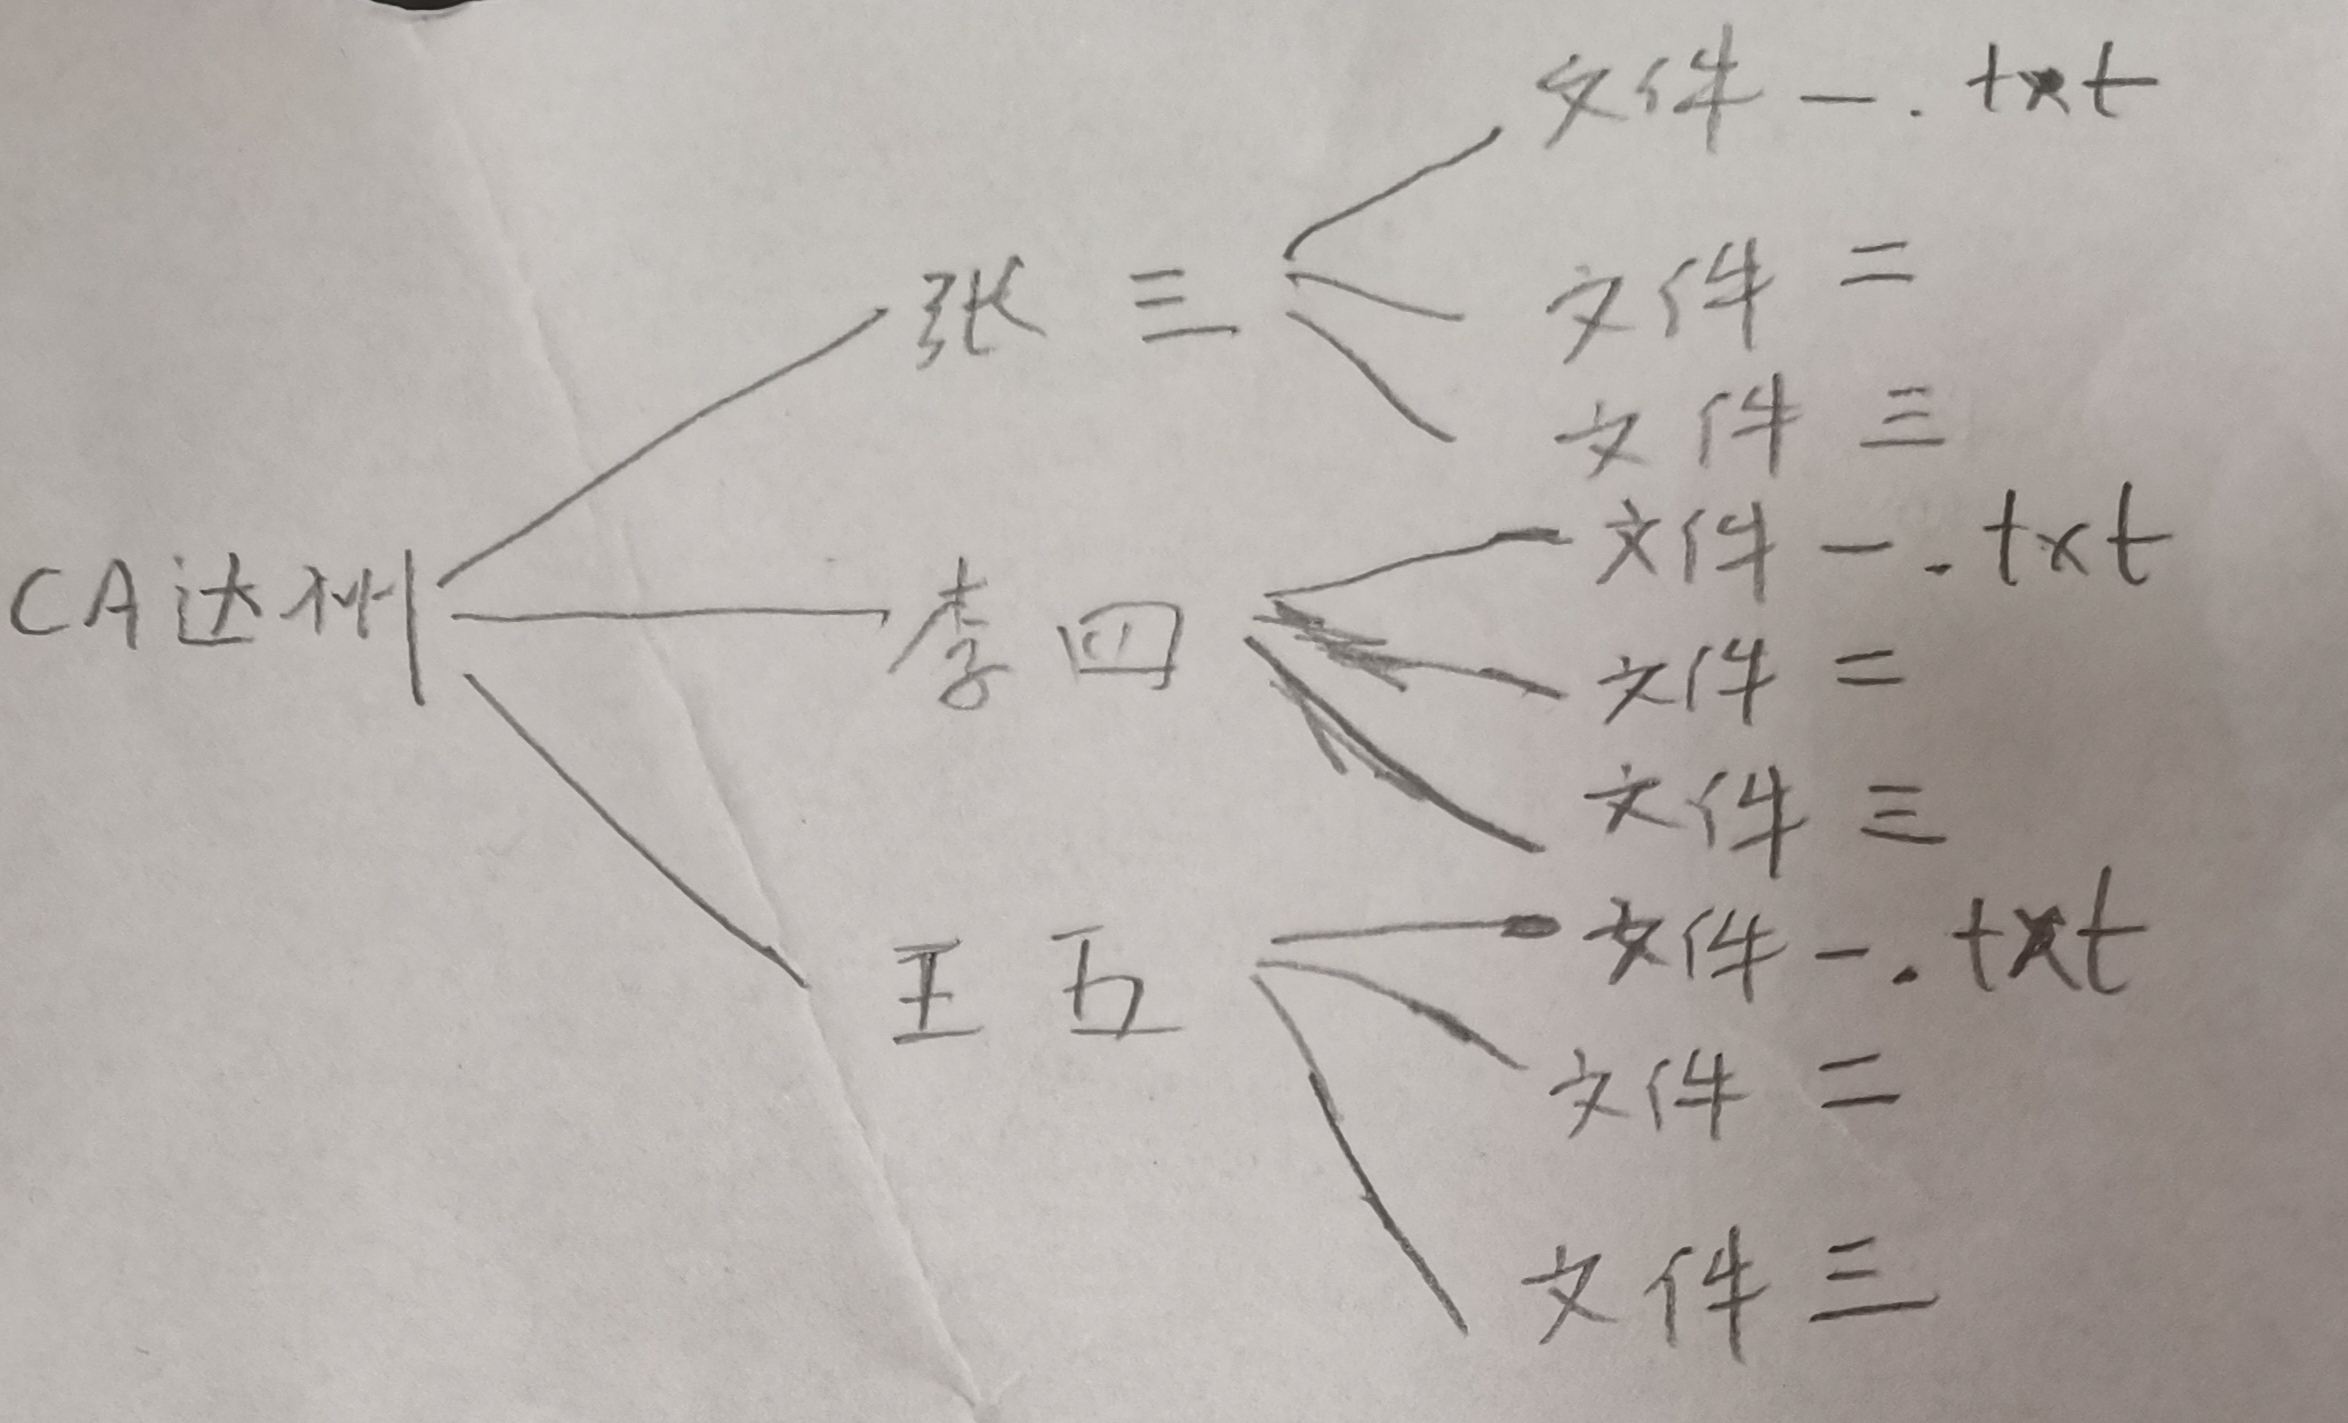 CA达州
张三
文件一.txt
文件二
文件三
李四
文件一.txt
文件二
文件三
王五
文件一.txt
文件二
文件三